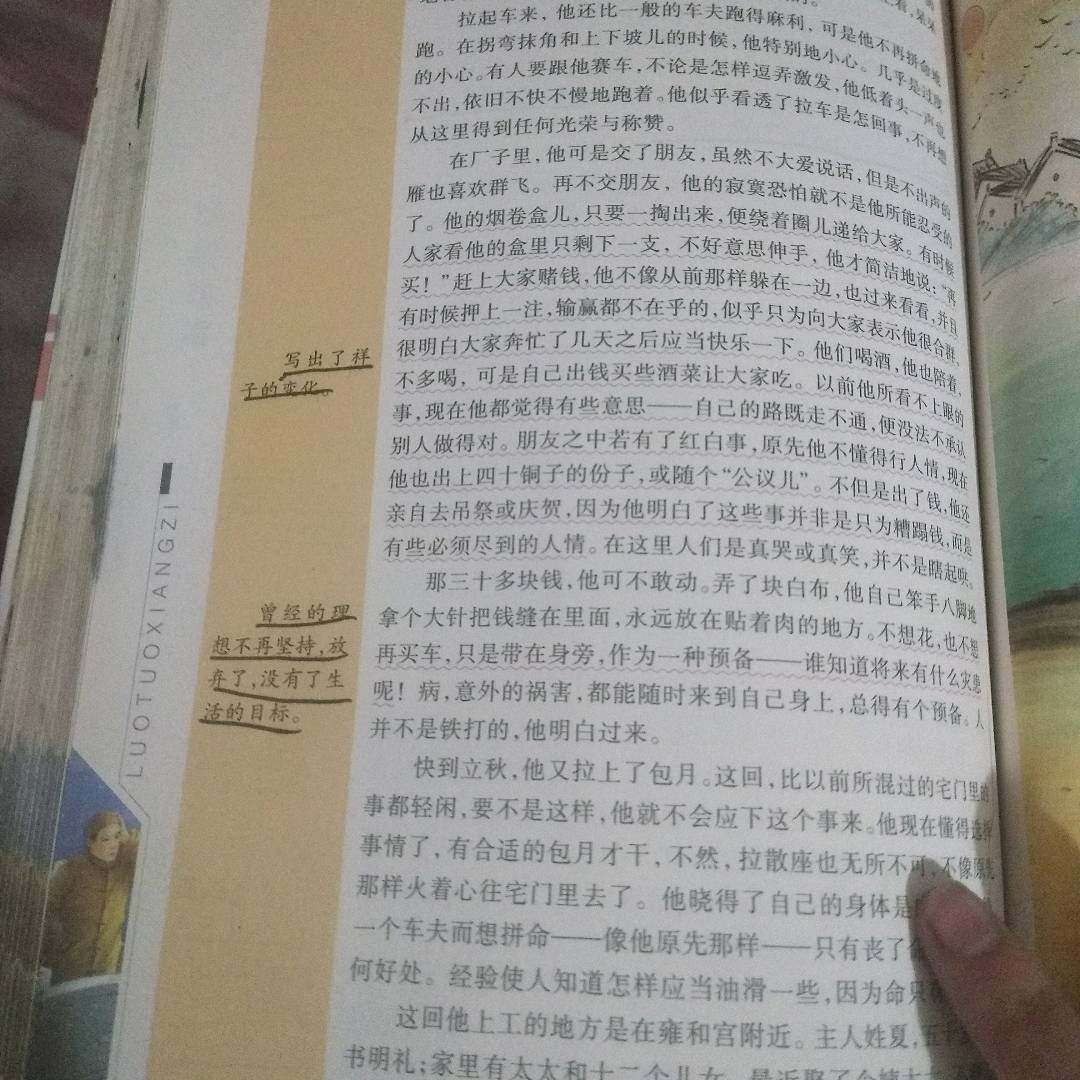 拉起车来，他还比一般的车夫跑得麻利，可是他不再拼命地
跑。在拐弯抹角和上下坡儿的时候，他特别地小心。几乎是过度
的小心。有人要跟他赛车，不论是怎样逗弄激发，他低着头一声也
不出，依旧不快不慢地跑着。他似乎看透了拉车是怎回事，不再想
从这里得到任何光荣与称赞。
在厂子里，他可是交了朋友，虽然不大爱说话，但是不出声的
雁也喜欢群飞。再不交朋友，他的寂寞恐怕就不是他所能忍受的
了。他的烟卷盒儿，只要一掏出来，便绕着圈儿递给大家。有时候
人家看他的盒里只剩下一支，不好意思伸手，他才简洁地说：“再
买！”赶上大家赌钱，他不像从前那样躲在一边，也过来看看，并且
有时候押上一注，输赢都不在乎的，似乎只为向大家表示他很合群，
很明白大家奔忙了几天之后应当快乐一下。他们喝酒，他也陪着，
不多喝，可是自己出钱买些酒菜让大家吃。以前他所看不上眼的
事，现在他都觉得有些意思——自己的路既走不通，便没法不承认
别人做得对。朋友之中若有了红白事，原先他不懂得行人情，现在
他也出上四十铜子的份子，或随个“公议儿”。不但是出了钱，他还
亲自去吊祭或庆贺，因为他明白了这些事并非是只为糟蹋钱，而是
有些必须尽到的人情。在这里人们是真哭或真笑，并不是瞎起哄。
那三十多块钱，他可不敢动。弄了块白布，他自己笨手八脚地
拿个大针把钱缝在里面，永远放在贴着肉的地方。不想花，也不想
再买车，只是带在身旁，作为一种预备——谁知道将来有什么灾患
呢！病，意外的祸害，都能随时来到自己身上，总得有个预备。人
并不是铁打的，他明白过来。
快到立秋，他又拉上了包月。这回，比以前所混过的宅门里的
事都轻闲，要不是这样，他就不会应下这个事来。他现在懂得选择
事情了，有合适的包月才干，不然，拉散座也无所不可，不像原先
那样火着心往宅门里去了。他晓得了自己的身体是
一个车夫而想拼命——像他原先那样——只有丧了
何好处。经验使人知道怎样应当油滑一些，因为命只
这回他上工的地方是在雍和宫附近。主人姓夏，五
书明礼；家里有太太和十二个儿女。最近娶了个姨太
写出了祥
子的变化。
曾经的理
想不再坚持，放
弃了，没有了生
活的目标。
LUOTUOXIANGZI